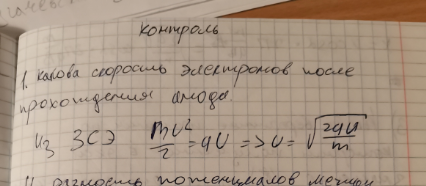 контроль
1. Какова скорость электронов после
прохождения анода.
из ЗСЭ mυ²/2 = qU => υ = √(2qU/m)
разность потенциалов между